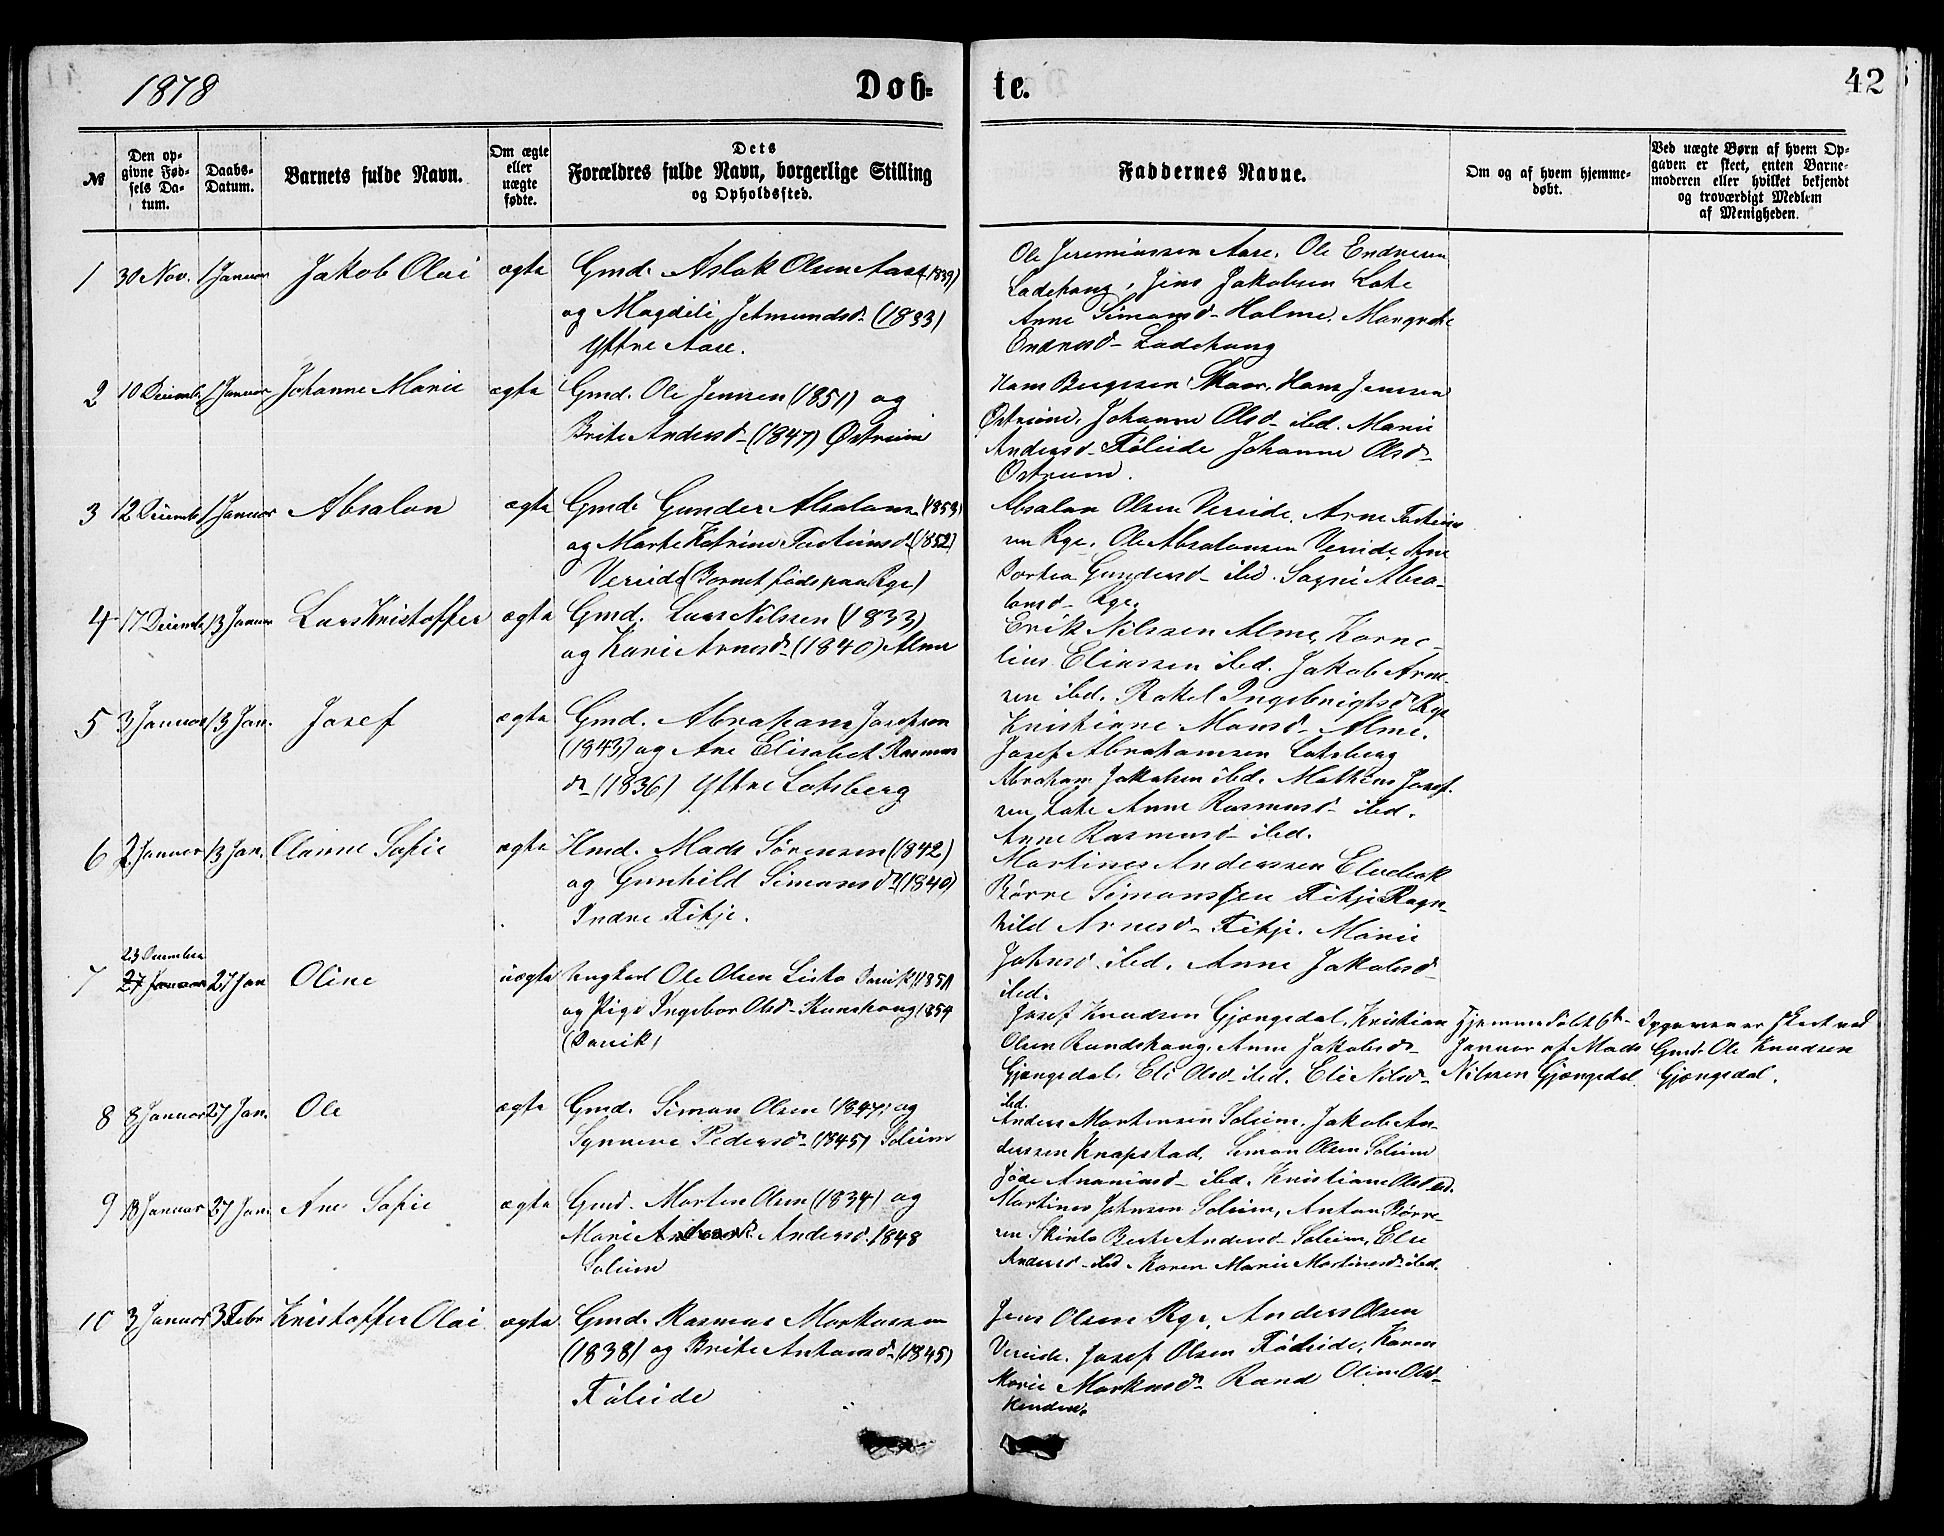 1878
Døb-
te.
42
№
Den op-
givne Fød-
sels Da-
tum.
Daabs-
Datum.
Barnets fulde Navn.
Om ægte
eller
uægte
fødte.
Dets
Forældres fulde Navn, borgerlige Stilling
og Opholdssted.
Faddernes Navne.
Om og af hvem hjemme-
døbt.
Ved uægte Børn af hvem Op-
gaven er skeet, enten Barne-
moderen eller hvilket bekjendt
og troværdigt Medlem
af Menigheden.
1 30 Nov. 1 Januar Jakob Olai ægte
Gmd. Aslak Olsen Aase (1839)
og Magdeli Jetmundsd. (1833)
Yttre Aase.
Ole Jeremiassen Aase, Ole Endresen
Ladehaug, Jens Jakobsen Lote
Anne Simonsd. Holme, Margrete
Endresd. Ladehaug
2 10 Decembr 1 Januar Johanne Marie ægte
Gmd. Ole Jensen (1851) og
Brite Andersd. (1847) Østreim
Hans Bergesen Skaar, Hans Jensen
Østreim, Johanne Olsd. ibd. Marie
Andersd. Føleide Johanne Olsd.
Østreim.
3 12 Decembr 1 Januar Absalon ægte
Gmd. Gunder Absalons. (1853)
og Marte Katrine Tostensd. (1852)
Vereide (Barnet født paa Ryg)
Absalon Olsen Vereide, Arne Tosten
sen Ryg. Ole Absalonsen Vereide, Ane
Dortea Gundersd. ibd. Sagni Absa-
lonsd. Ryg.
4 17 Decembr 13 Januar Lars Kristoffer ægte
Gmd. Lars Nilssen (1833)
og Kari Arnesd. (1840) Alme
Erik Nilssen Alme, Korne-
lius Eliassen ibd. Jakob Arne-
sen ibd. Rakel Ingebrigtsd. Ryg
Kristiane Monsd. Alme.
5 3 Januar 13 Jan. Josef ægte
Gmd. Abraham Josefsen
(1843) og Ane Elisabet Rasmus
d. (1836) Yttre Lotsberg
Josef Abrahamsen Lotsberg
Abraham Jakobsen ibd. Mathias Josef-
sen Lote Anne Rasmusd. ibd.
Anne Rasmusd. ibd.
6 2 Januar 13 Jan. Olanne Sofie ægte
Hmd. Mads Sørensen (1842)
og Gunhild Simonsd. (1840)
Indre Fitje.
Martines Anderssen
Børre Simonssen Fitje Ragn-
hild Arnesd. Fitje. Marie
Johnsd. ibd. Anne Jakobsd.
ibd.
7 23 December
27 Januar 27 Jan Oline uægte
Ungkarl Ole Olsen Davik (1851)
og Pige Ingebor Olsd. 1854
(Davik)
Josef Knudsen Gjengedal, Kristian
Olsen Anne Jakobsd.
Gjengedal, Eli Olsd. ibd. Eli Nilsd.
ibd.
Hjemmedøbt 6te
Januar af Mads
Nilssen Gjengedal
Opgaven er skeet ved
Gmd. Ole Knudsen
Gjengedal.
8 8 Januar 27 Jan. Ole ægte
Gmd. Simon Olsen (1847) og
Synneve Pedersd. (1845) Soleim
Anders Mortensen Soleim, Jakob An-
derssen Knapstad, Simon Olsen Soleim
Ananiasd. ibd. Kristiane Olsd. ibd.
9 13 Januar 27 Jan. Ane Sofie ægte
Gmd. Morten Olsen (1834) og
Marie Andersd. 1848
Soleim
Martines Johnsen Soleim, Anton Børre-
sen Berte Andersd. Soleim, Else
Andersd. ibd. Karen Marie Martinesd. ibd.
10 3 Januar 3 Febr Kristoffer Olai ægte
Gmd. Rasmus Markussen
(1838) og Brite Antonsd. (1845)
Føleide
Jens Olsen Ryg, Anders Olsen
Vereide. Josef Olsen Føleide, Karen
Marie Markusd. Rand Oline Olsd.